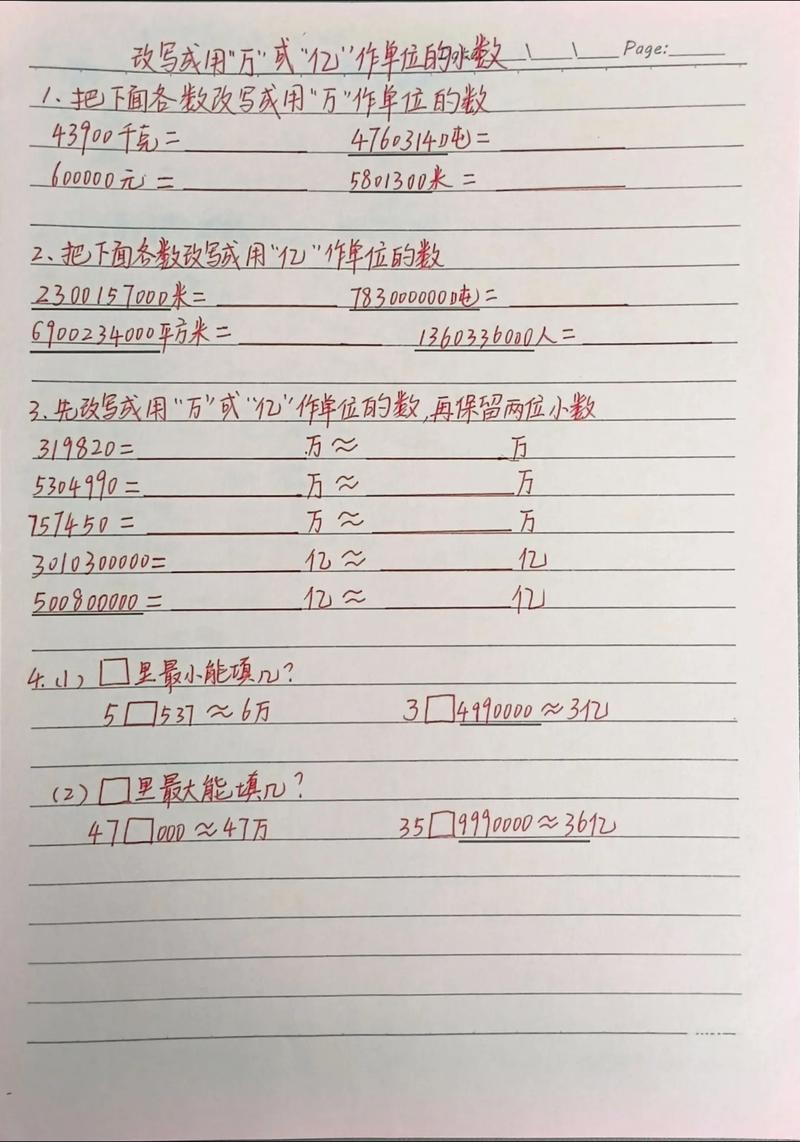 改写成用"万"或"亿"作单位的小数 Page:
1、把下面各数改写成用"万"作单位的数
43900千克= 47603140吨=
600000元= 5801300米=
2、把下面各数改写成用"亿"作单位的数
2300157000米= 783000000吨=
6900234000平方米= 1360336000人=
3、先改写成用"万"或"亿"作单位的数,再保留两位小数
319820= 万≈ 万
5304990= 万≈ 万
757450= 万≈ 万
3010300000= 亿≈ 亿
500800000= 亿≈ 亿
4.(1) □里最小能填几?
5□537≈6万 3□4990000≈3亿
(2) □里最大能填几?
47□000≈47万 35□9990000≈36亿